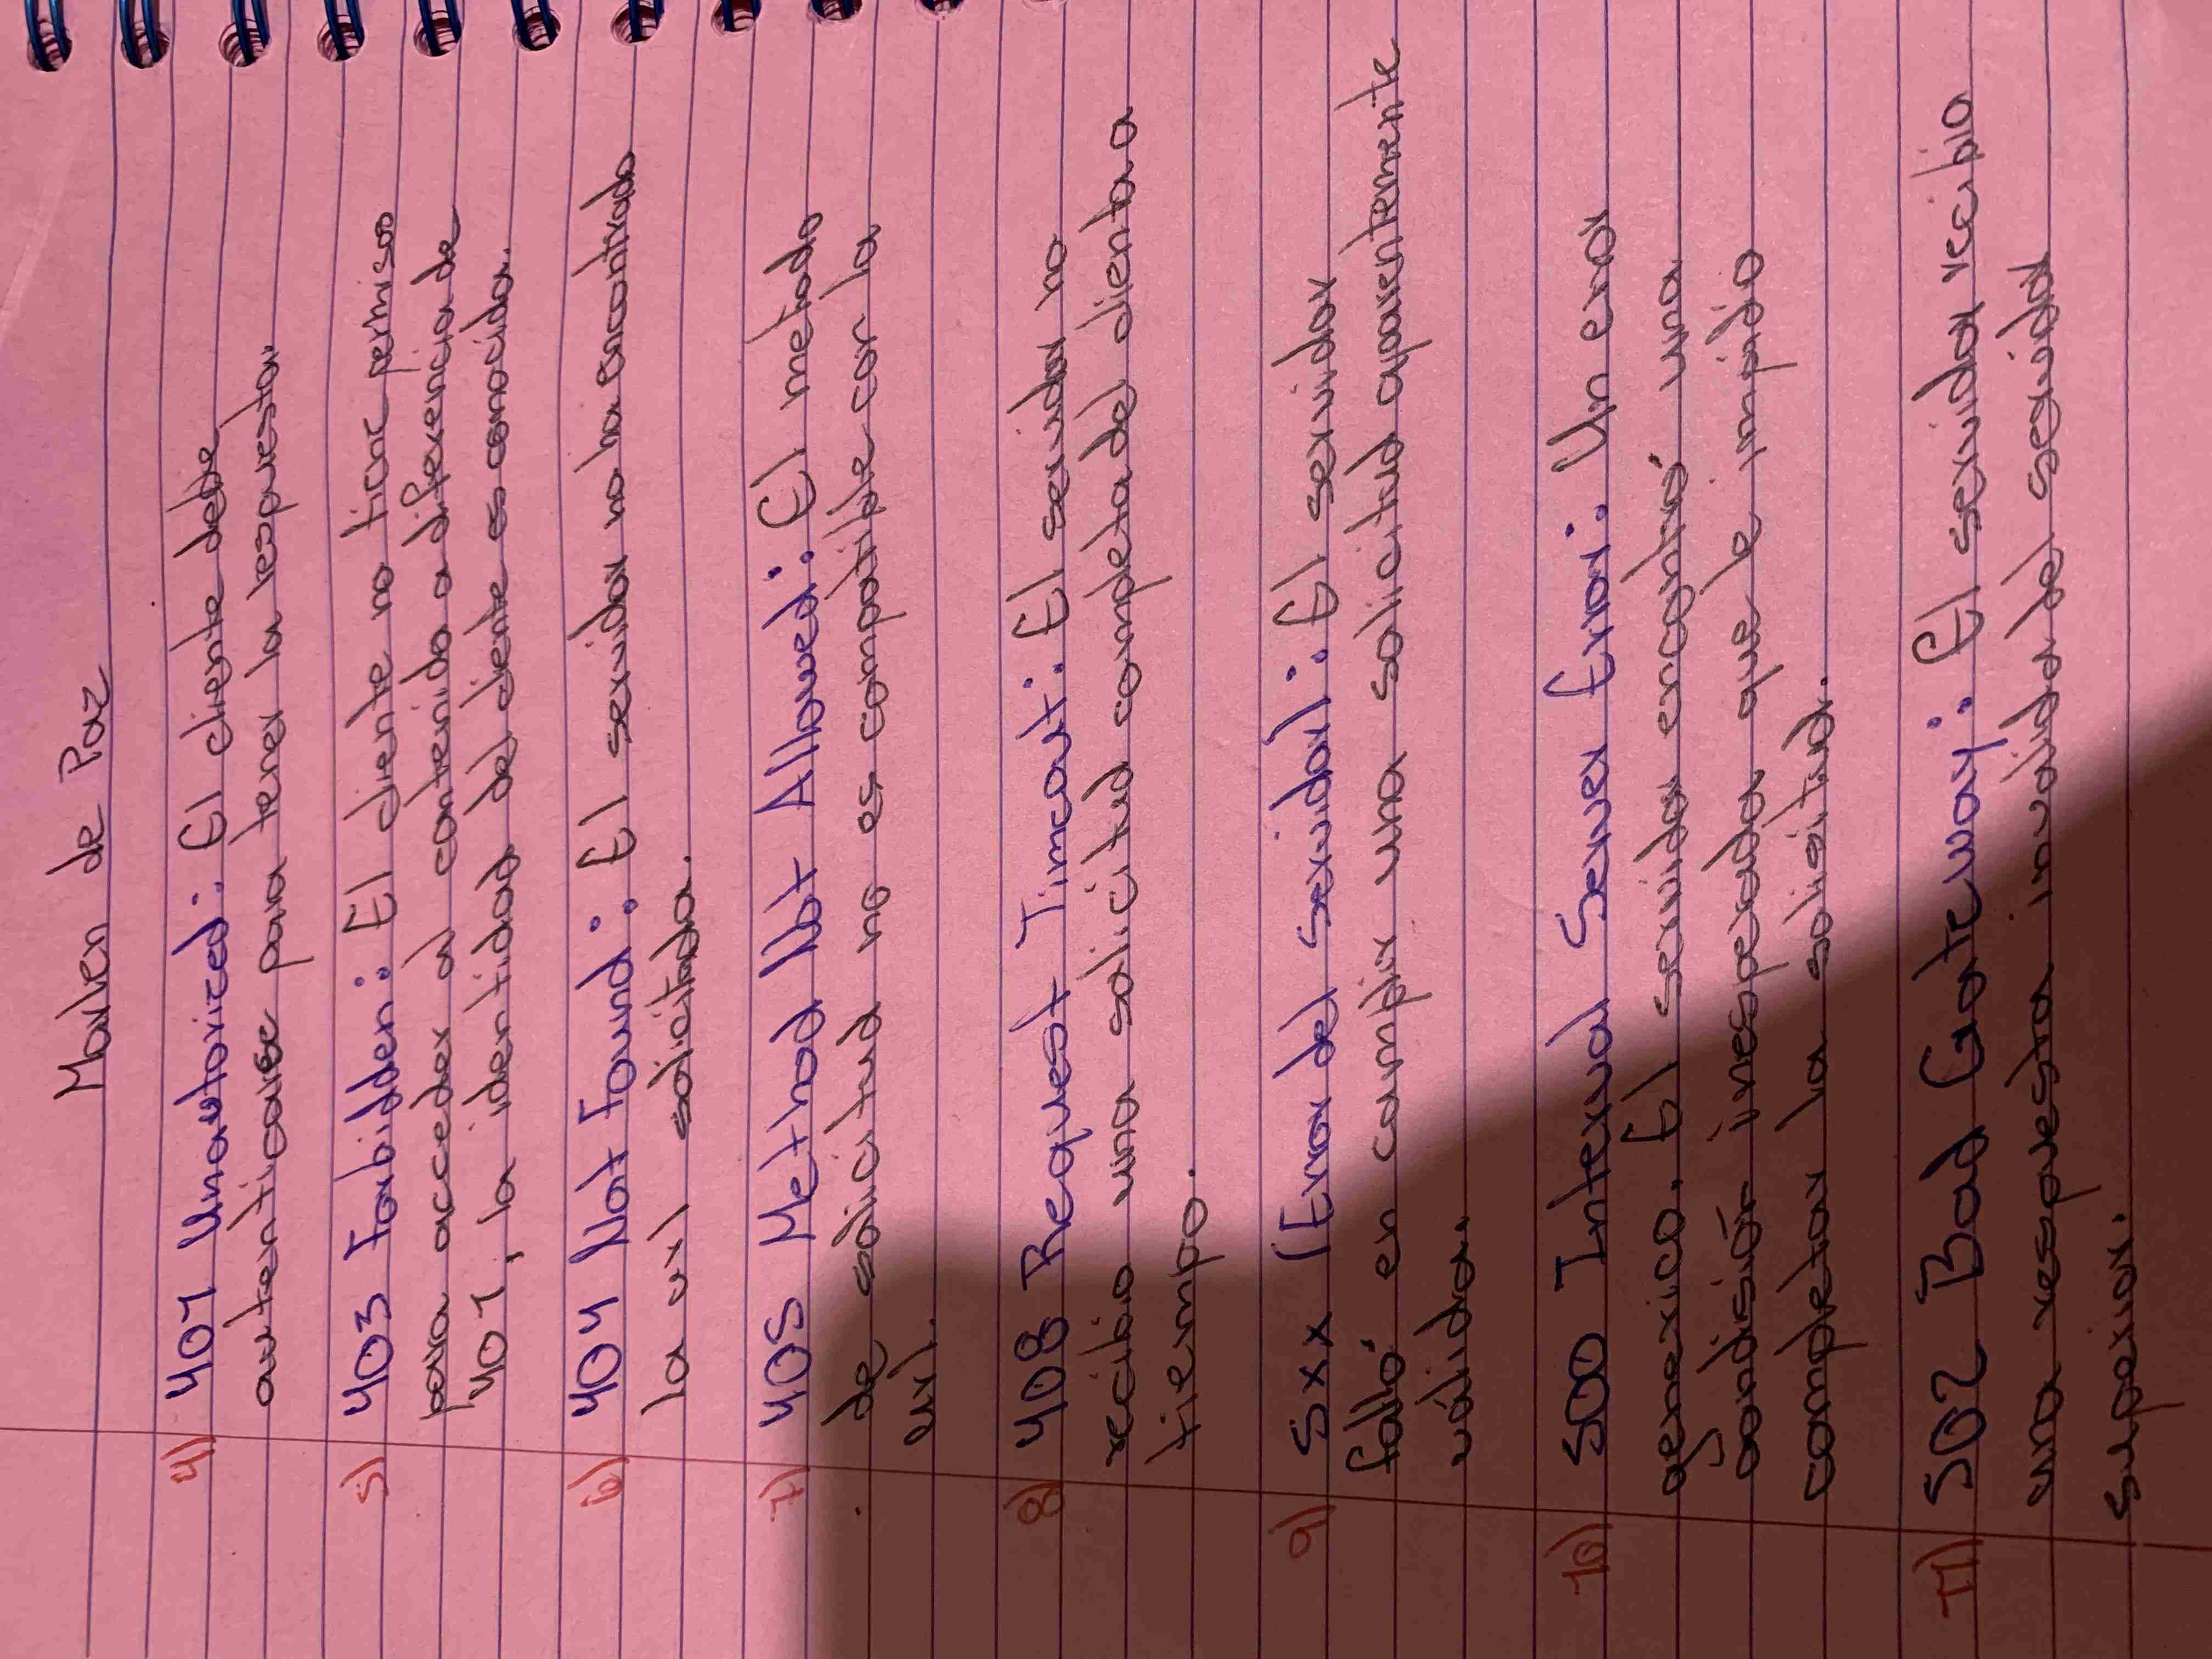 Marlen de Paz
4) 401 Unautoriced: El cliente debe
autenticarse para tener la respuesta.
5) 403 Forbidden: El cliente no tiene permisos
para acceder al contenido a diferencia de
401, la identidad del cliente es conocida.
6) 404 Not Found: El servidor no ha encontrado
la url solicitada.
7) 405 Method Not Allowed: El metodo
de solicitud no es compatible con la
url.
8) 408 Request Timeout: El servidor no
recibio una solicitud completa del cliente a
tiempo.
9) 5xx (Error del servidor): El servidor
falló en cumplir una solicitud aparentemente
válida.
10) 500 Internal Server Error: Un error
generico. El servidor encontró una
condisión inesperada que le impidio
completar la solisitud.
11) 502 Bad Gateway: El servidor recibio
una respuesta invalida del servidor
superior.